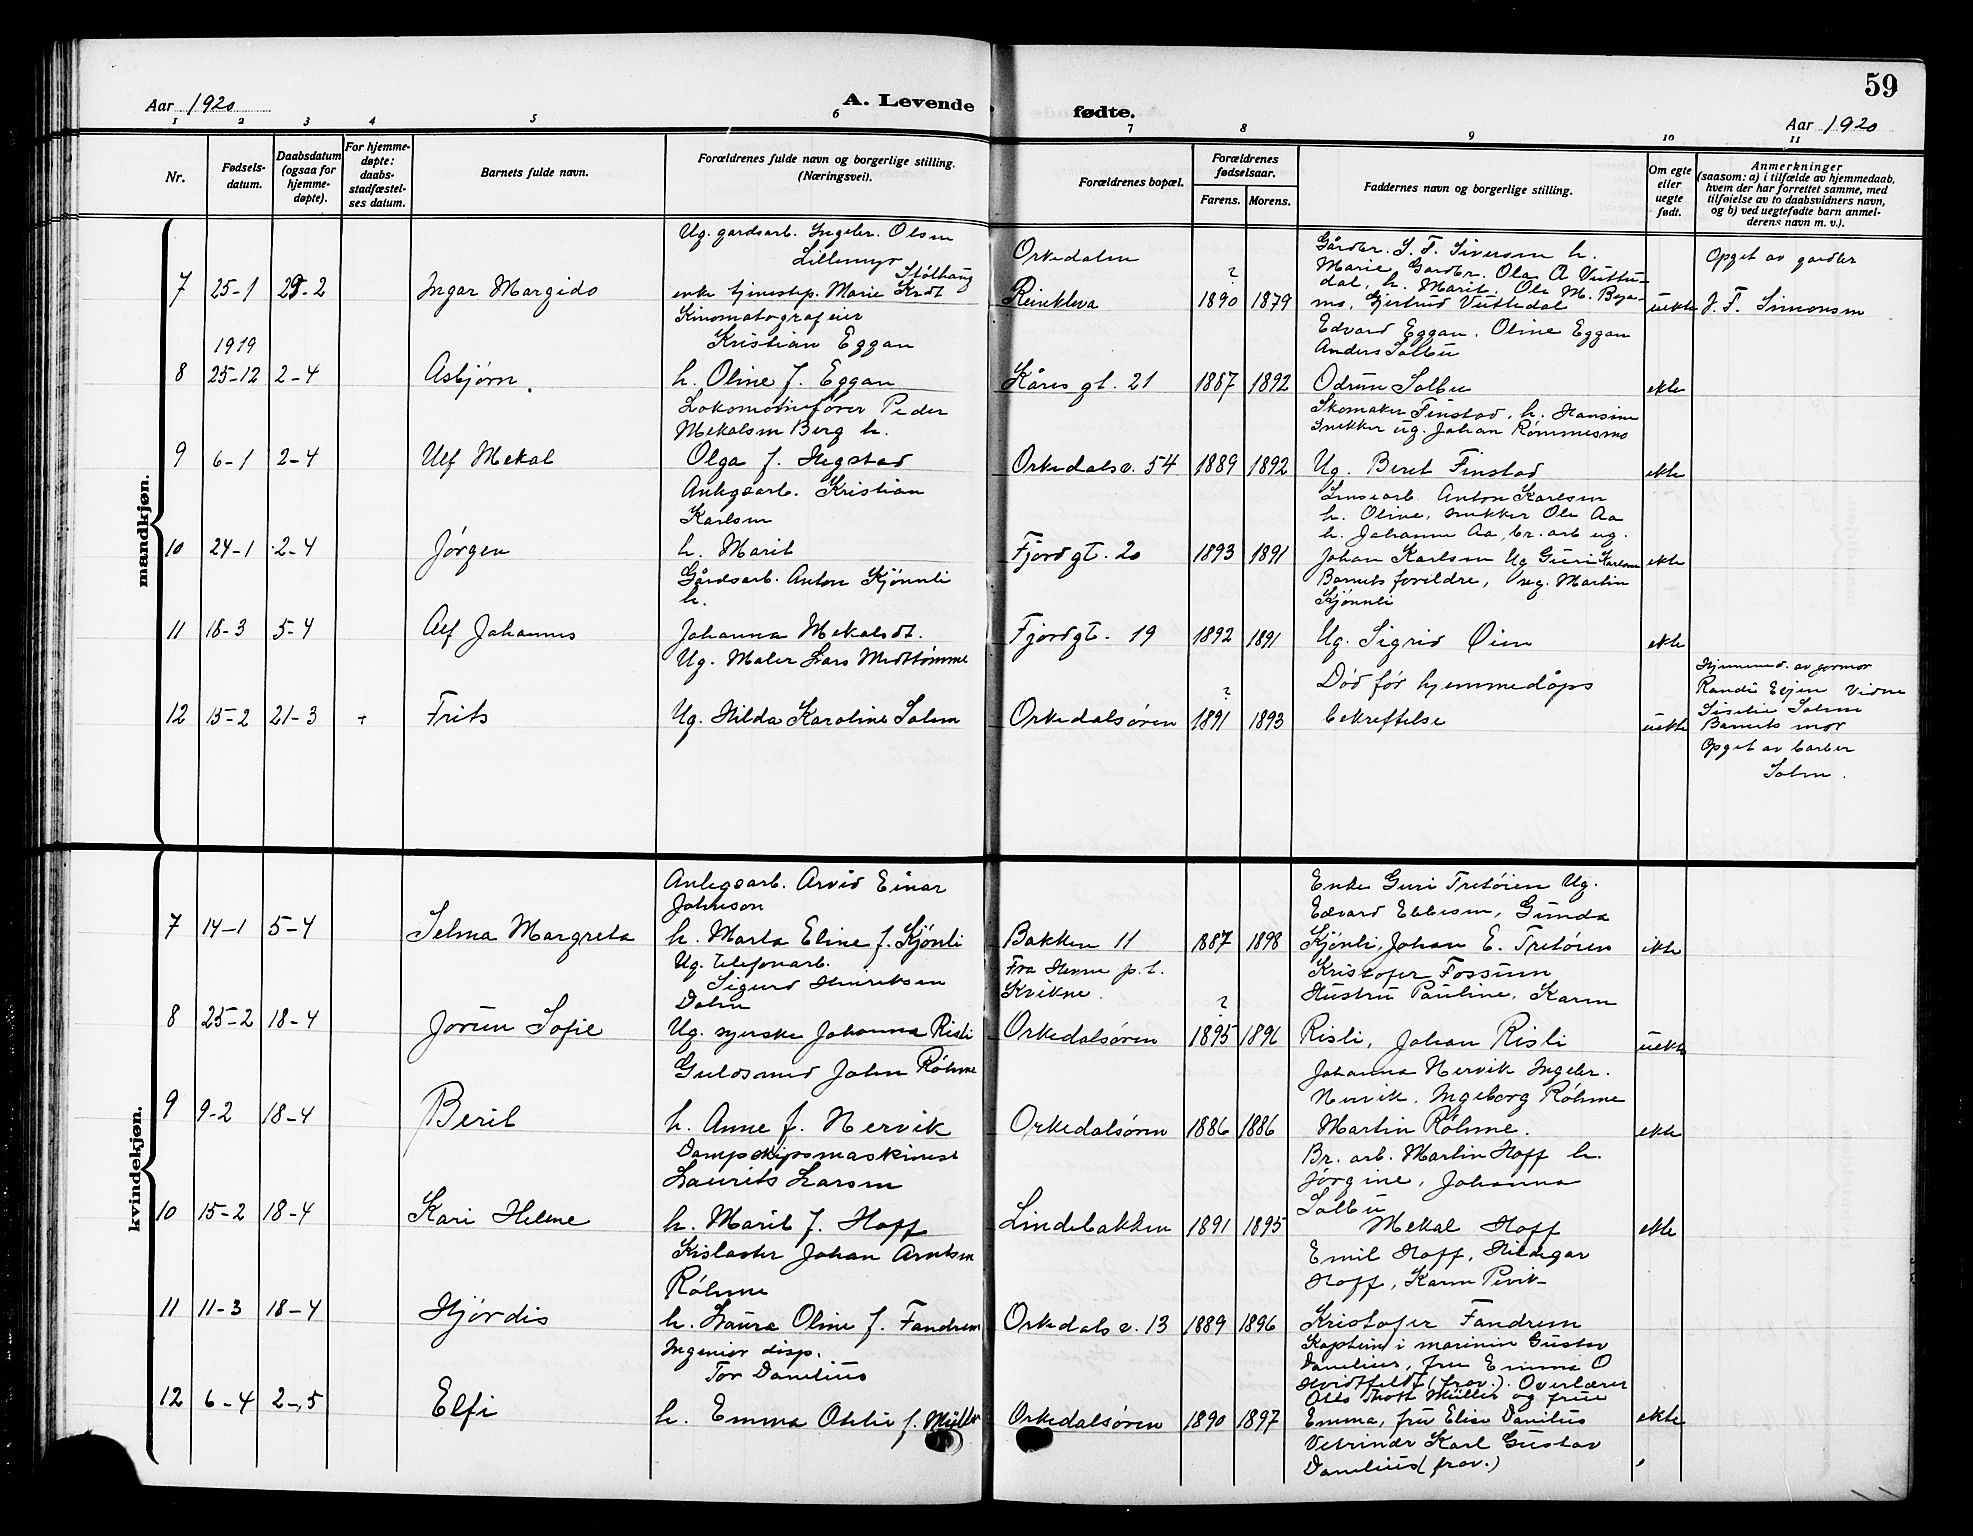 59
Aar 1920
A. Levende
fødte.
Aar 1920
1 2 3 4 5 6 7 8 9 10 11
Nr.
Fødsels-
datum.
Daabsdatum
(ogsaa for
hjemme-
døpte).
For hjemme-
døpte:
daabs-
stadfæstel-
ses datum.
Barnets fulde navn.
Forældrenes fulde navn og borgerlige stilling.
(Næringsvei).
Forældrenes bopæl.
Forældrenes
fødselsaar.
Farens. Morens.
Faddernes navn og borgerlige stilling.
Om egte
eller
uegte
født.
Anmerkninger
(saasom: a) i tilfælde av hjemmedaab,
hvem der har forrettet samme, med
tilføielse av to daabsvidners navn,
og b) ved uegtefødte barn anmel-
derens navn m. v.).
mandkjøn.
7 25-1 29-2 Ingar Margido
Ug. gardsarb. Ingebr. Olsen
Lillemyr
enke tjenestep. Marie Krdt Støthaug
Orkedalen
Rinkleva
? 1890 1879
Gårdbr. S. F. Siversen h.
Marie Gardbr. Ola A Vuttu-
dal, h. Marit, Ole M. Bya-
mo, Gjertrud Vuttudal
uekte
Opget av gardbr
J. F. Simonsen
8 1919
25-12 2-4 Asbjørn.
Kinomatografeier
Kristian Eggan
h. Oline f. Eggan
Kåres gt. 21 1887 1892
Edvard Eggan, Oline Eggan
Anders Solbu
Odrun Solbu
ekte
9 6-1 2-4 Ulf Mekal
Lokomotivfører Peder
Mekalsen Berg h.
Olga f. Hegstad
Orkedalsv. 54 1889 1892
Skomaker Finstad, h. Hansine
Snekker ug. Johan Rømmesmo
Ug. Beret Finstad
ekte
10 24-1 2-4 Jørgen
Anlegsarb. Kristian
Karlsen
h. Marit
Fjordgt. 20 1893 1891
Anton Karlsen
h. Oline, snekker Ole Aa
h. Johanna Aa, br. arb ug.
Johan Karlsen Ug Guri Karlsen
ekte
11 18-3 5-4 Alf Johannes
Gårdsarb. Anton Kjønnli
h.
Johanna Mekalsdt.
Fjordgt. 19 1892 1891
Barnets foreldre, ug. Martin
Kjønnli
Ug. Sigrid Øien
ekte
12 15-2 21-3 + Frits
Ug. Maler Lars Midttømme
Ug. Hilda Karoline Solem
Orkedalsøren ? 1891 1893
Død før hjemmedåps
bekreftelse
uekte
Hjemmed. av gormor
Randi Eljen Vidne
Siselie Solem
Barnets mor
Opget av barber
Solem.
kvindekjøn.
7 14-1 5-4 Selma Margreta
Anlegsarb. Arvid Einar
Johnson
h. Marta Eline f. Kjønli
Bakken 11 1887 1898
Enke Guri Tretøien Ug.
Edvard Ebbesen, Gunda
Kjønli, Johan E. Tretøien
ekte
8 25-2 18-4 Jorun Sofie
Ug. telefonarb.
Sigurd Henriksen
Dalen
Ug. syerske Johanna Risli
Fra Henne p.t.
Kvikne.
Orkedalsøren ? 1895 1896
Kristofer Fossum
Hustru Pauline, Karen
Risli, Johan Risli
uekte
9 9-2 18-4 Berit
Guldsmed John Røhme
h. Anne f. Nervik
Orkedalsøren 1886 1886
Johanna Nervik Ingebr.
Nervik, Ingeborg Røhme
Martin Røhme.
ekte
10 15-2 18-4 Kari Helene
Dampskipsmaskinist
Laurits Larsen
h. Marit f. Hoff
Lindebakken 1891 1895
Br. arb. Martin Hoff h.
Jørgine, Johanna
Solbu
Mekal Hoff
ekte
11 11-3 18-4 Hjørdis
Kislaster Johan Arntsen
Røhme
h. Laura Oline f. Fandrem
Orkedalsv. 13 1889 1896
Emil Hoff, Hildegar
Hoff, Karen Pevik
Kristofer Fandrem
12 6-4 2-5 Elfi
Ingeniør disp.
Tor Danelius
h. Emma Otilie f. Müller
Orkedalsøren 1890 1897
Kaptein i marinen Gustav
Danelius, fru Emma O
Hvidtfeldt (frav.). Overlærer
Otto Thott Müller og frue
Emma, fru Elise Danelius
Vetrinær Karl Gustav
Danelius (frav.)
ekte